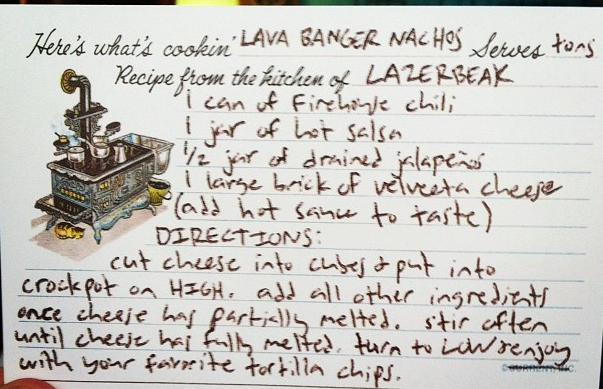 Here's what's cookin' LAVA BANGER NACHOS Serves tons
Recipe from the kitchen of LAZERBEAK
1 can of Firehouse chili
1 jar of hot salsa
1/2 jar of drained jalapeños
1 large brick of velveeta cheese
(add hot sauce to taste)
DIRECTIONS:
cut cheese into cubes & put into
crockpot on HIGH. add all other ingredients
once cheese has partially melted. stir often
until cheese has fully melted. turn to LOW & enjoy
with your favorite tortilla chips.
© CURRENT, INC.